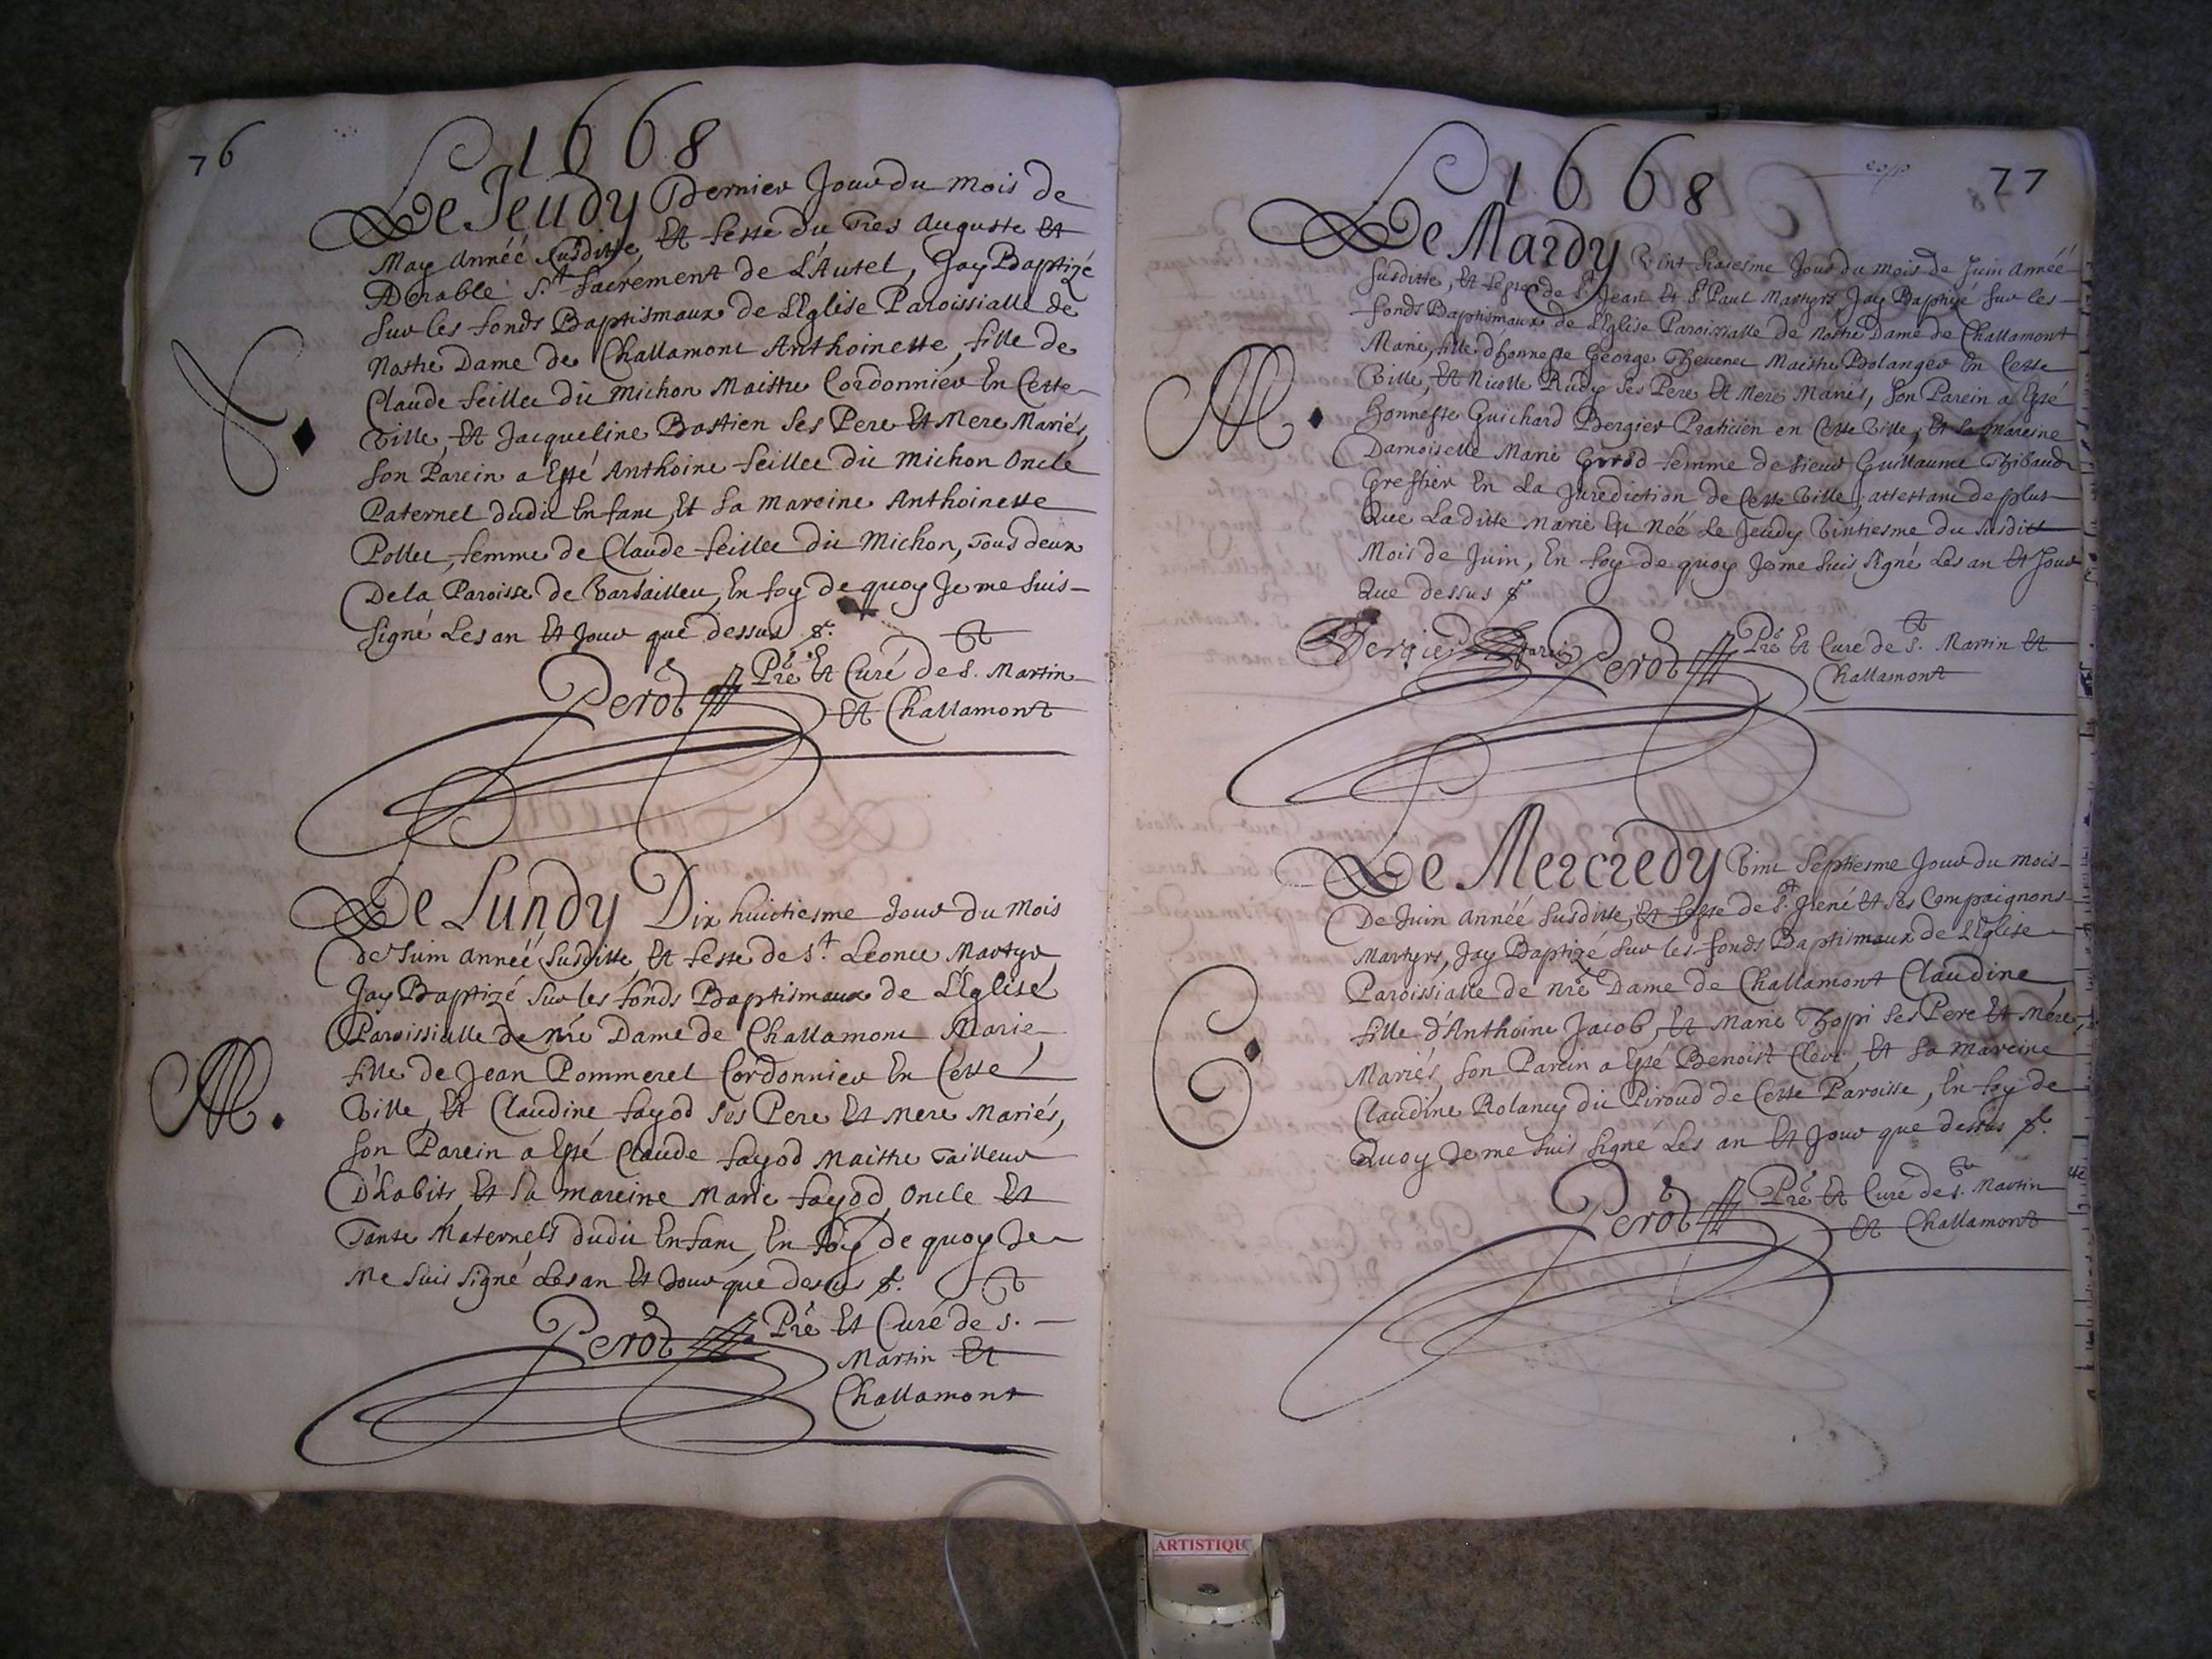 76
1668
Le Jeudy Dernier Jour du Mois de
May Année Susditte, Et feste du Tres Auguste Et
Adorable St. Sacrement de L'Autel, Jay Baptizé
Sur les fonds Baptismaux de L'Eglise Paroissialle de
Nostre Dame de Challamont Anthoinette, fille de
Claude feillee dit Michon Maistre Cordonnier En Cette
Ville, Et Jacqueline Bastien Ses Pere Et Mere Mariés,
Son Parein a Esté Anthoine feillee dit Michon Oncle
Paternel dudit Enfant, Et Sa Mareine Anthoinette
Pollet, femme de Claude feillee dit Michon, Tous deux
De la Paroisse de Varsailleu, En foy de quoy Je me Suis
Signé Les an Et Jour que dessus
Perod Pre Et Curé de S. Martin
Et Challamont
Le Lundy Dix huictiesme Jour du Mois
de Juin Année Susditte, Et feste de St. Leonce Martyr
Jay Baptizé Sur les fonds Baptismaux de L'Eglise
Paroissialle de Nre Dame de Challamont Marie
fille de Jean Pommerel Cordonnier En Cette
Ville, Et Claudine fayod Ses Pere Et Mere Mariés,
M.
Son Parein a Esté Claude fayod Maistre Tailleur
D'habits, Et Sa Mareine Marie fayod, Oncle Et
Tante Maternels dudit Enfant, En foy de quoy Je
Me Suis Signé Les an Et Jour que dessus
Perod Pre Et Curé de S.
Martin Et
Challamont
77
1668
Le Mardy Vint Sixiesme Jour du Mois de Juin Année
Susditte, Et de St. Jean Et S. Paul Martyrs Jay Baptizé Sur les
fonds Baptismaux de L'Eglise Paroissialle de Nostre Dame de Challamont
Marie, fille d'honneste George Thevenet Maistre Bolanger En Cette
Ville, Et Nicolle Rudy Ses Pere Et Mere Mariés, Son Parein a Esté
M.
Honneste Guichard Bergier Praticien en Cette Ville, Et Sa Mareine
Damoiselle Marie femme de Sieur Guillaume Thibaud
Greffier En La Juridiction de Cette Ville, attestant de plus
Que Laditte Marie Née Le Jeudy Vintiesme du Susdit
Mois de Juin, En foy de quoy Je me Suis Signé Les an Et Jour
Que dessus
Bergier Parein Perod Pre Et Curé de S. Martin Et
Challamont
Le Mercredy Vint Septiesme Jour du Mois
De Juin Année Susditte, Et feste de St. Irené Et Ses Compaignons
Martyrs, Jay Baptizé Sur les fonds Baptismaux de L'Eglise
Paroissialle de Nre Dame de Challamont Claudine
fille d'Anthoine Jacob, Et Marie Thopi Ses Pere Et Mere
C
Mariés, Son Parein a Esté Benoist Clerc Et Sa Mareine
Claudine Rolany du Piroud de Cette Paroisse, En foy de
Quoy Je me Suis Signé Les an Et Jour que dessus
Perod Pre Et Curé de S. Martin
Et Challamont
ARTISTIQU